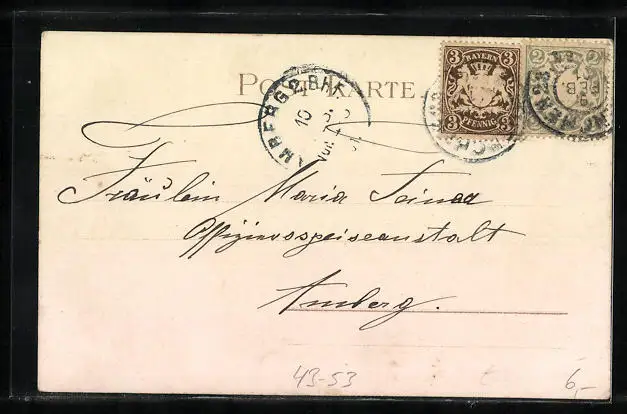 POSTKARTE
3 BAYERN 3
3 PFENNIG 3
2 2
AMBERG B.BHF.
10
MÜNCHEN
FEB
Fräulein Maria
Offiziersspeiseanstalt
Amberg.
43-53
6,-